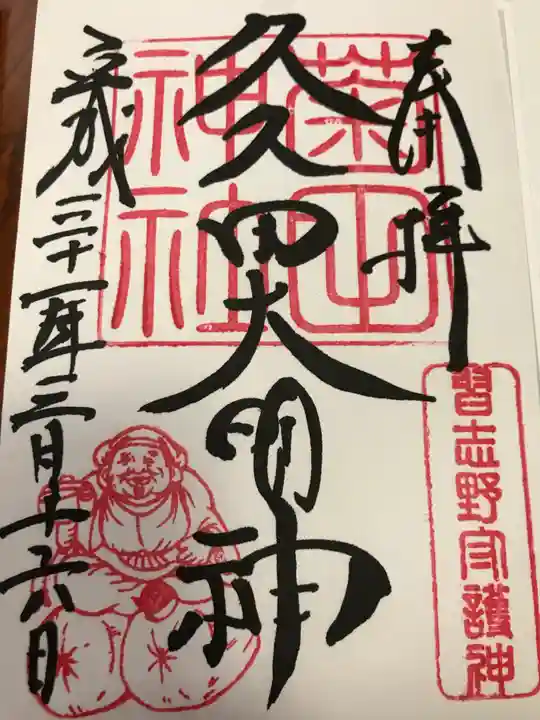 奉拝
久久田大明神
平成三十一年三月十六日
菊田神社
習志野守護神